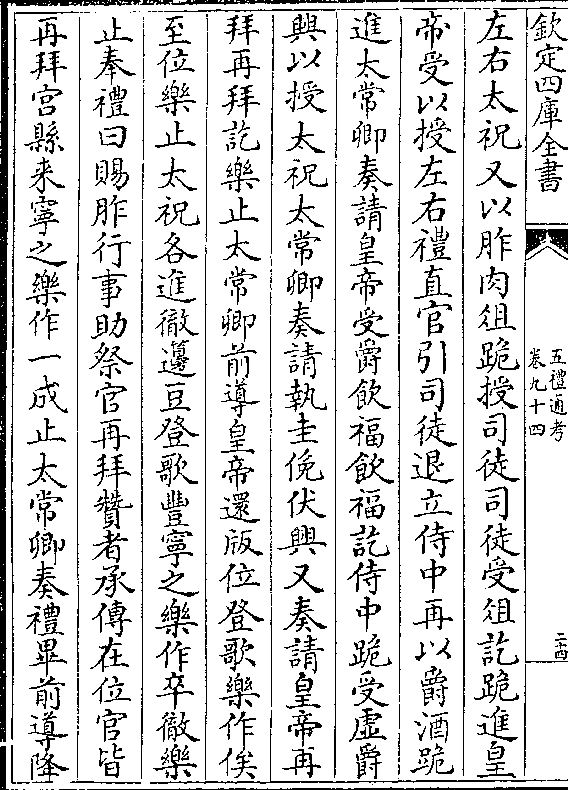 欽定四庫全書
五禮通考
卷九十四
二十四
左右太祝又以胙肉俎跪授司徒司徒受俎訖跪進皇
帝受以授左右禮直官引司徒退立侍中再以爵酒跪
進太常卿奏請皇帝受爵飲福飲福訖侍中跪受虛爵
興以授太祝太常卿奏請執圭俛伏興又奏請皇帝再
拜再拜訖樂止太常卿前導皇帝還版位登歌樂作俟
至位樂止太祝各進徹籩豆登歌豐寧之樂作卒徹樂
止奉禮曰賜胙行事助祭官再拜贊者承傳在位官皆
再拜宮縣来寧之樂作一成止太常卿奏禮畢前導降